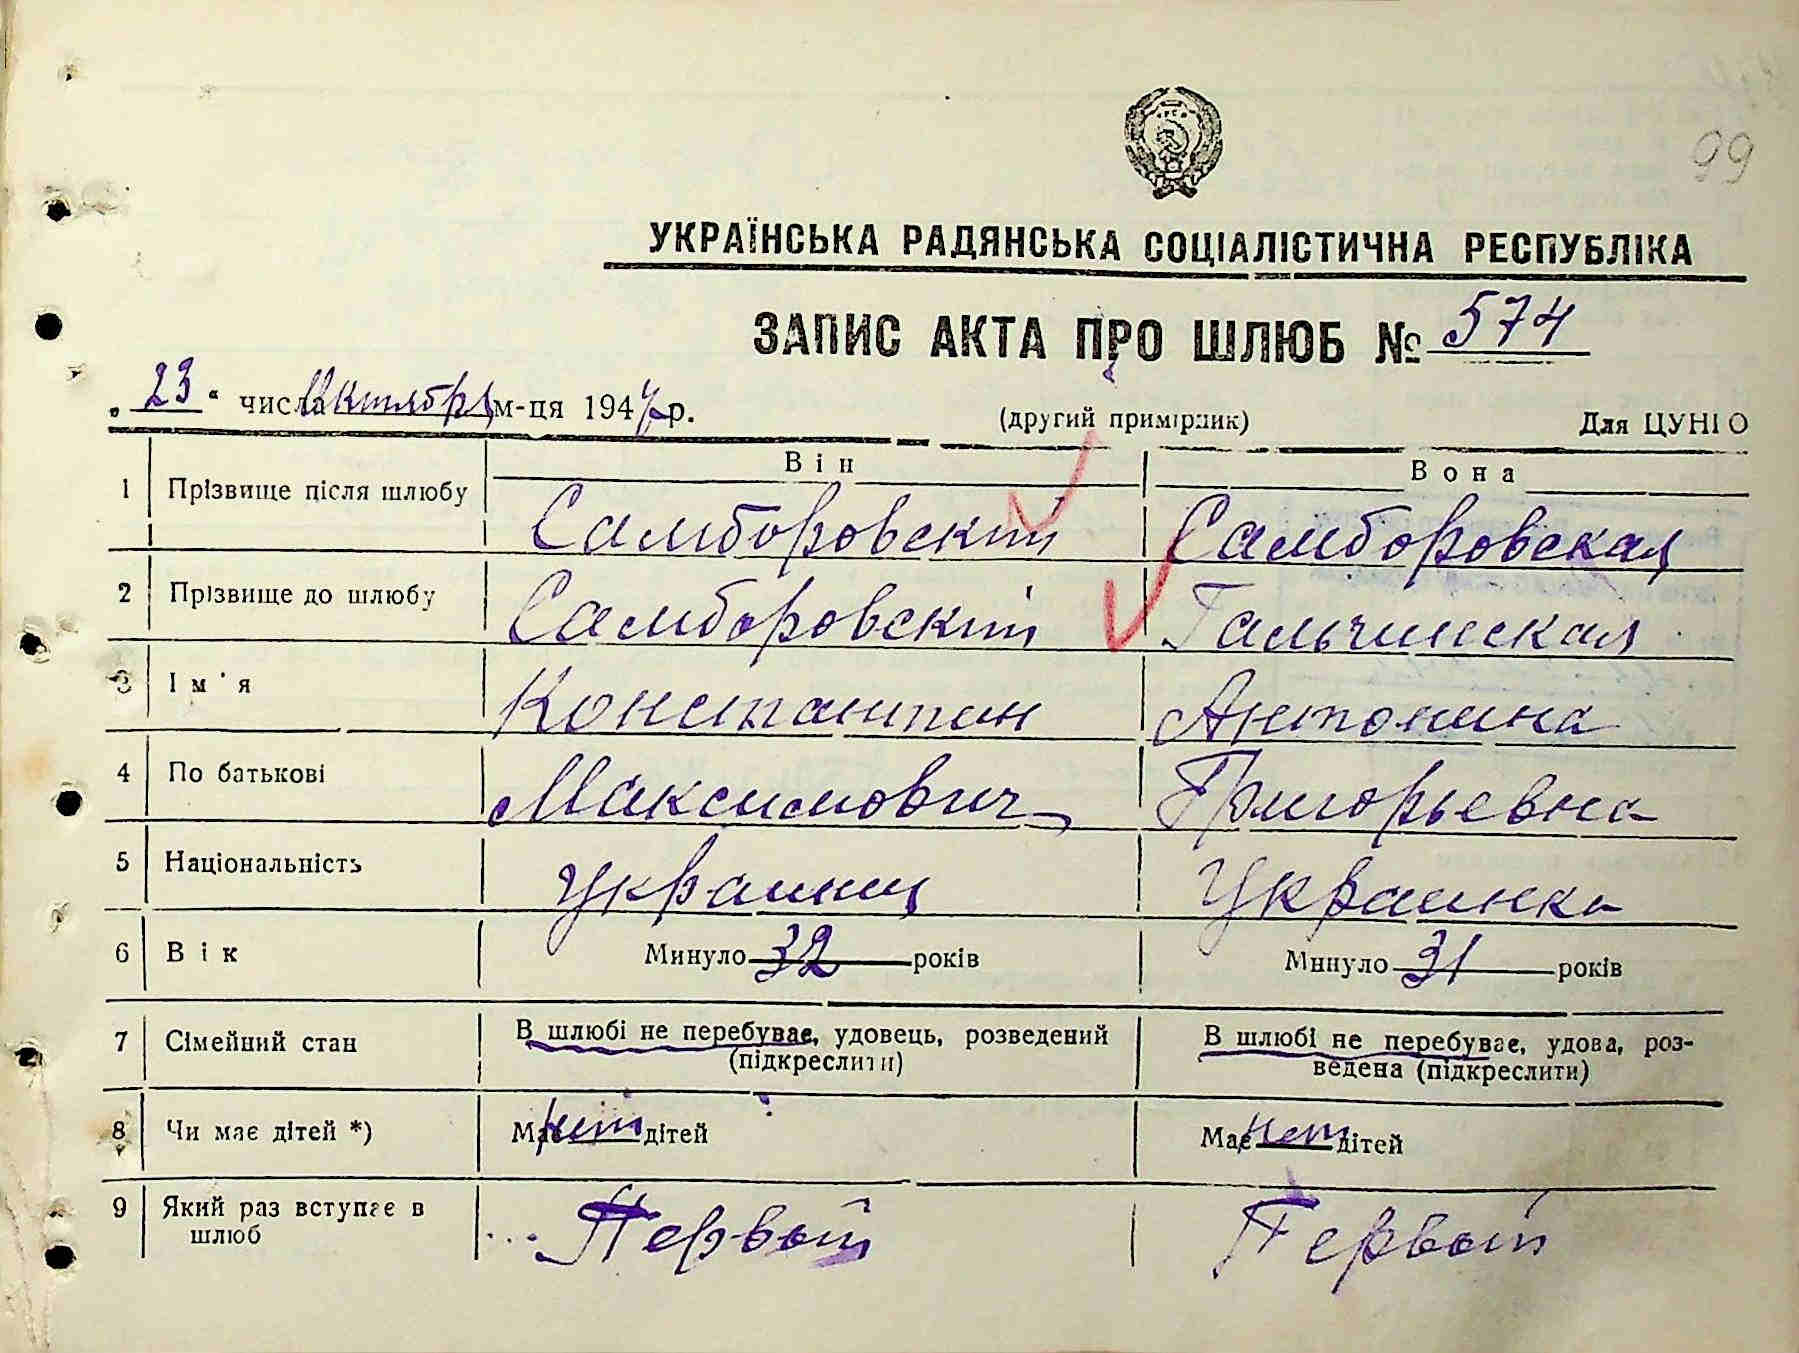 99
УКРАЇНСЬКА РАДЯНСЬКА СОЦІАЛІСТИЧНА РЕСПУБЛІКА
ЗАПИС АКТА ПРО ШЛЮБ № 574
„ 23 “ числа Октября м-ця 1947 р. (другий примірник) Для ЦУНГО
Він Вона
1 Прізвище після шлюбу Самборовский Самборовская
2 Прізвище до шлюбу Самборовский Гальчинская
3 Ім'я Константин Антонина
4 По батькові Максимович Григорьевна
5 Національність Украинец Украинка
6 Вік Минуло 32 років Минуло 31 років
7 Сімейний стан В шлюбі не перебуває, удовець, розведений В шлюбі не перебуває, удова, роз-
(підкреслити) ведена (підкреслити)
8 Чи має дітей *) Має нет дітей Має нет дітей
9 Який раз вступає в Первый Первый
шлюб